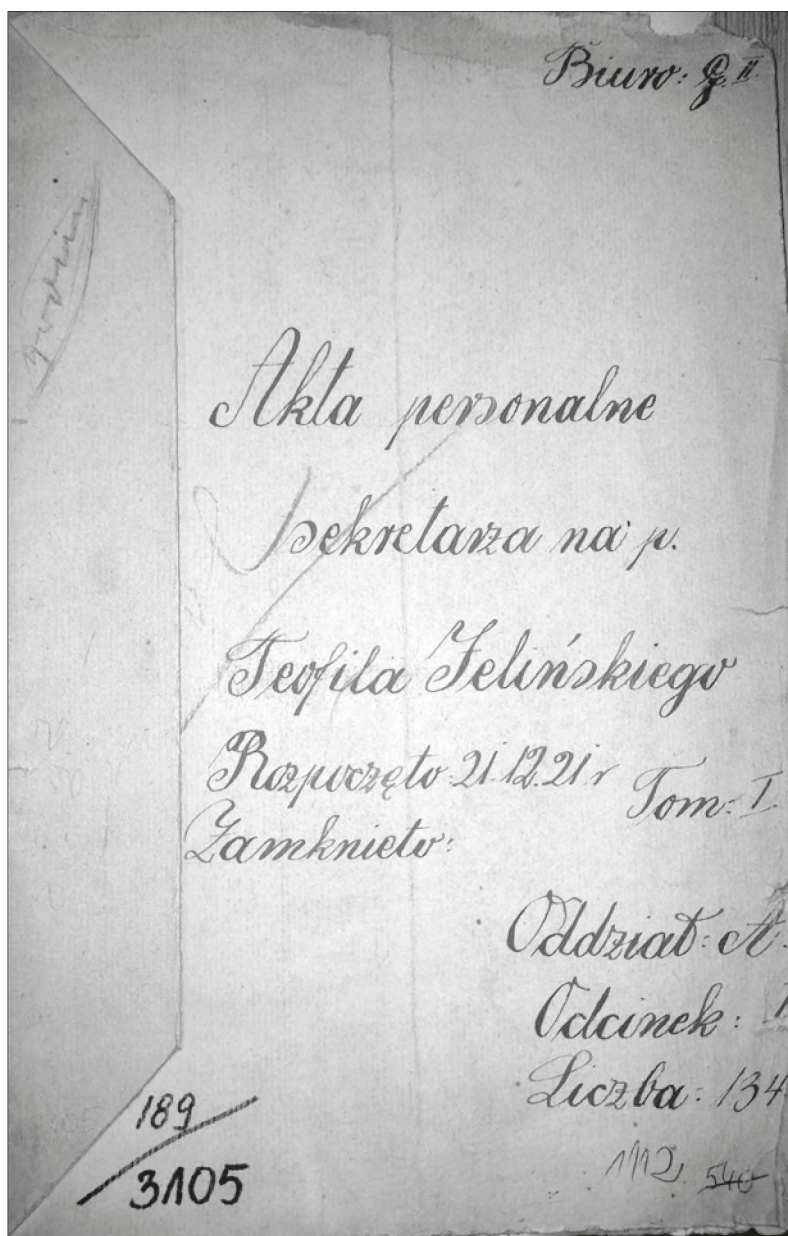 Biuro: G. II.
Akta personalne
sekretarza na p.
Teofila Jelińskiego
Rozpoczęto 21.12.21 r
Tom: I.
Zamknięto:
Oddział: A.
Odcinek: I
Liczba: 134
1112. 540
189
3105